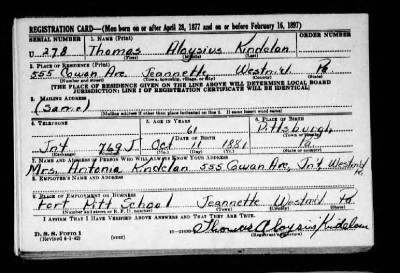 REGISTRATION CARD—(Men born on or after April 28, 1877 and on or before February 16, 1897)
SERIAL NUMBER 1. NAME (Print) ORDER NUMBER
U 278 Thomas Aloysius Kindelan
(First) (Middle) (Last)
2. PLACE OF RESIDENCE (Print)
555 Cowan Ave. Jeannette Westm'l'd Pa
(Number and street) (Town, township, village, or city) (County) (State)
[THE PLACE OF RESIDENCE GIVEN ON THE LINE ABOVE WILL DETERMINE LOCAL BOARD
JURISDICTION; LINE 2 OF REGISTRATION CERTIFICATE WILL BE IDENTICAL]
3. MAILING ADDRESS
(Same)
[Mailing address if other than place indicated on line 2. If same insert word same]
4. TELEPHONE 5. AGE IN YEARS 6. PLACE OF BIRTH
61 Pittsburgh
DATE OF BIRTH (Town or county)
Jn't 769 J Oct 11 1881 Pa
(Exchange) (Number) (Mo.) (Day) (Yr.) (State or country)
7. NAME AND ADDRESS OF PERSON WHO WILL ALWAYS KNOW YOUR ADDRESS
Mrs. Antonia Kindelan 555 Cowan Ave, Jn't Westm'l'd Pa
8. EMPLOYER'S NAME AND ADDRESS
9. PLACE OF EMPLOYMENT OR BUSINESS
Fort Pitt School Jeannette Westm'l'd Pa
(Number and street or R. F. D. number) (Town) (County) (State)
I AFFIRM THAT I HAVE VERIFIED ABOVE ANSWERS AND THAT THEY ARE TRUE.
D. S. S. Form 1
(Revised 4-1-42) (over) Thomas Aloysius Kindelan
(Registrant's signature)